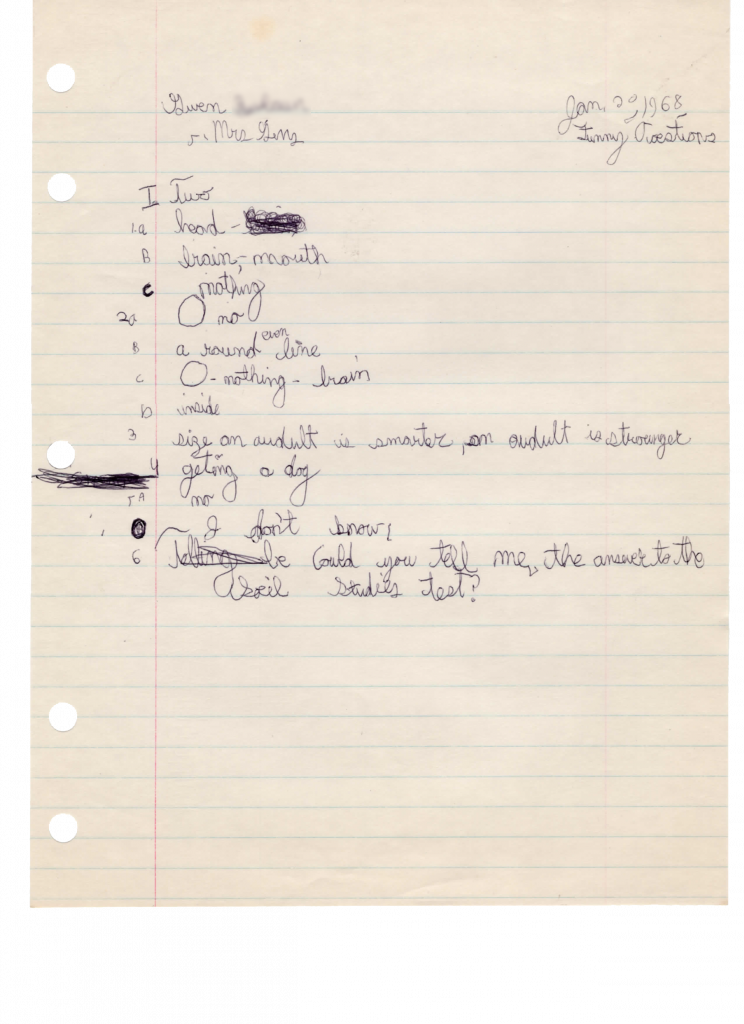 Gwen
5. Mrs Gins
Jan. 20, 1968
Funny Qoestions
I Two
1.a head -
B brain, - mouth
C nothing
2a O no
B a round even line
C O - nothing - brain
D inside
3 size an audult is smarter, an oudult is strounger
4 geting a dog
5A no
I don't know,
6 be Could you tell me, the answer to the
studies test?